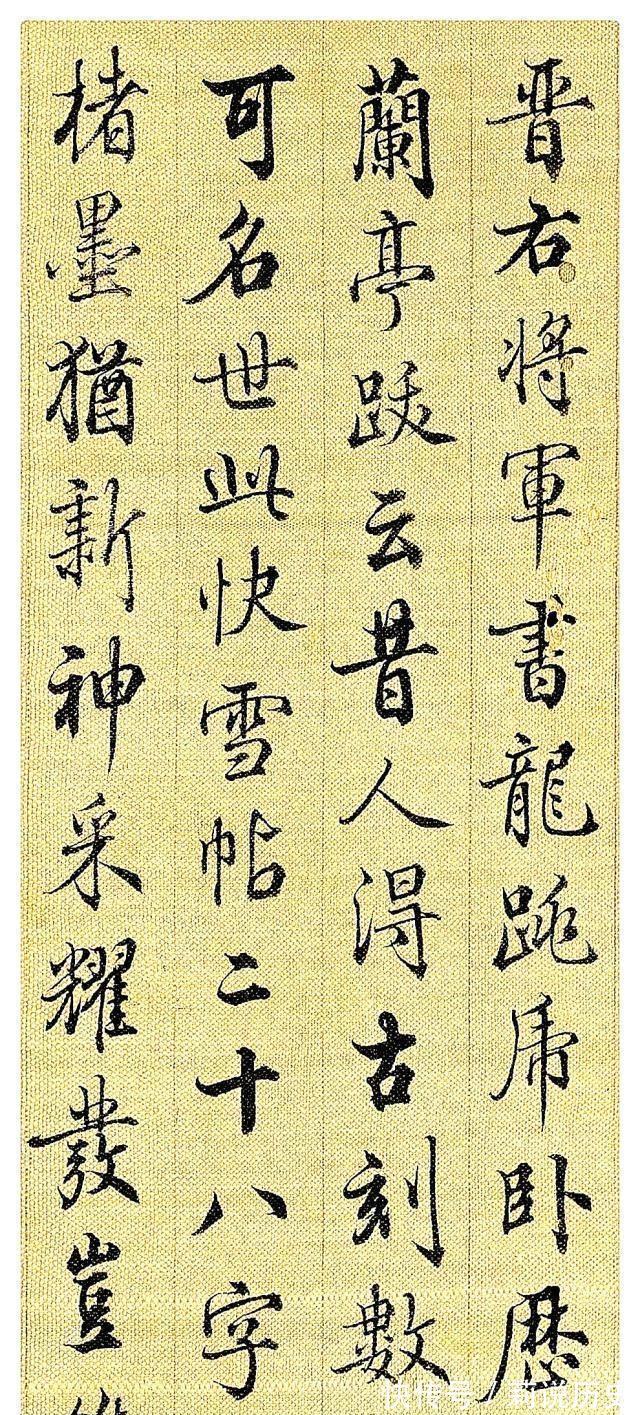 晋右将軍書龍跳虎卧歴
蘭亭跋云昔人得古刻數
可名世此快雪帖二十八字
楮墨猶新神采耀發豈
快传号/莉说历史